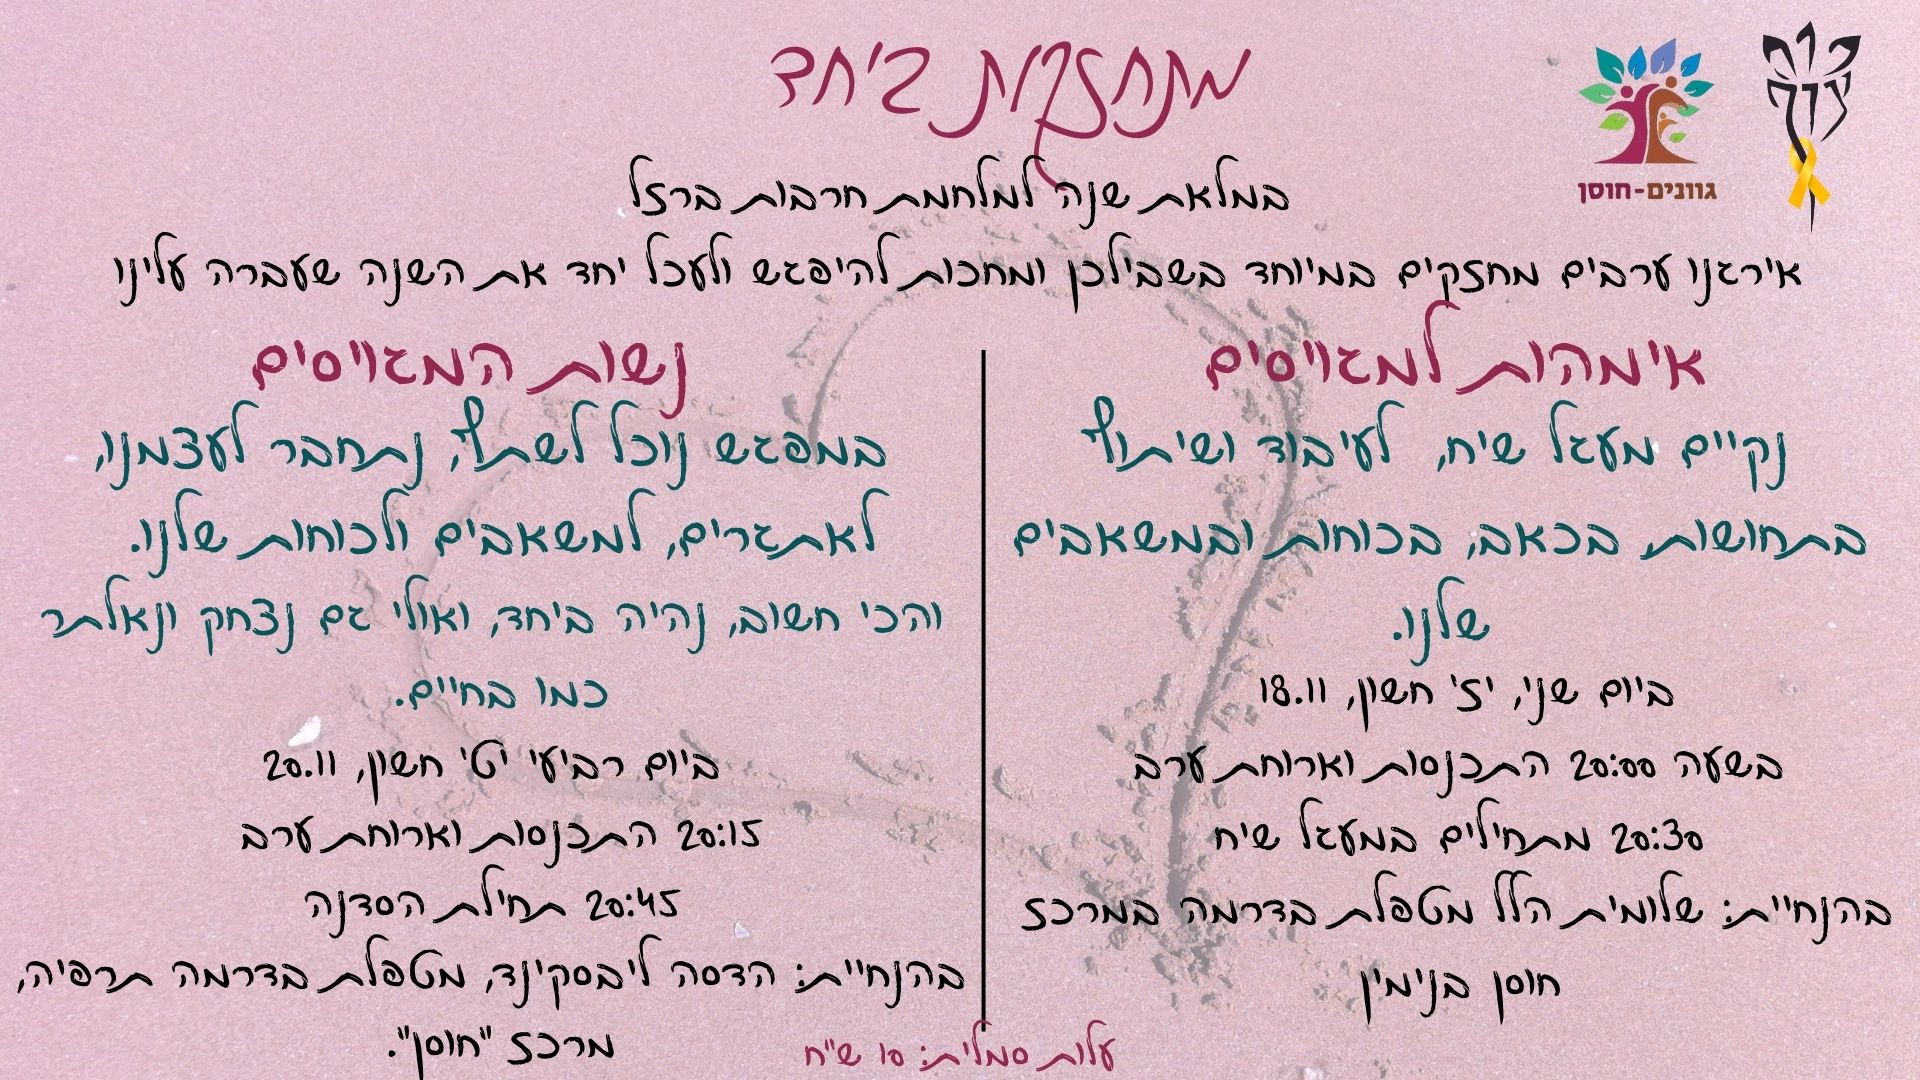 מתחזקות ביחד
צור
גוונים-חוסן
במלאת שנה למלחמת חרבות ברזל
אירגנו ערבים מחזקים במיוחד בשבילכן ומחכות להיפגש ולעכל יחד את השנה שעברה עלינו
אימהות למגויסים
נקיים מעגל שיח, לעיבוד ושיתוף
בתחושות, בכאב, בכוחות ובמשאבים
שלנו.
ביום שני, יז' חשון, 18.11
בשעה 20:00 התכנסות וארוחת ערב
20:30 מתחילים במעגל שיח
בהנחיית: שלומית הלל מטפלת בדרמה במרכז
חוסן בנימין
נשות המגויסים
במפגש נוכל לשתף, נתחבר לעצמנו,
לאתגרים, למשאבים ולכוחות שלנו.
והכי חשוב, נהיה ביחד, ואולי גם נצחק ונאלתר
כמו בחיים.
ביום רביעי יט' חשון, 20.11
20:15 התכנסות וארוחת ערב
20:45 תחילת הסדנה
בהנחיית: הדסה ליבסקינד, מטפלת בדרמה תרפיה,
מרכז "חוסן".
עלות סמלית: 10 ש"ח